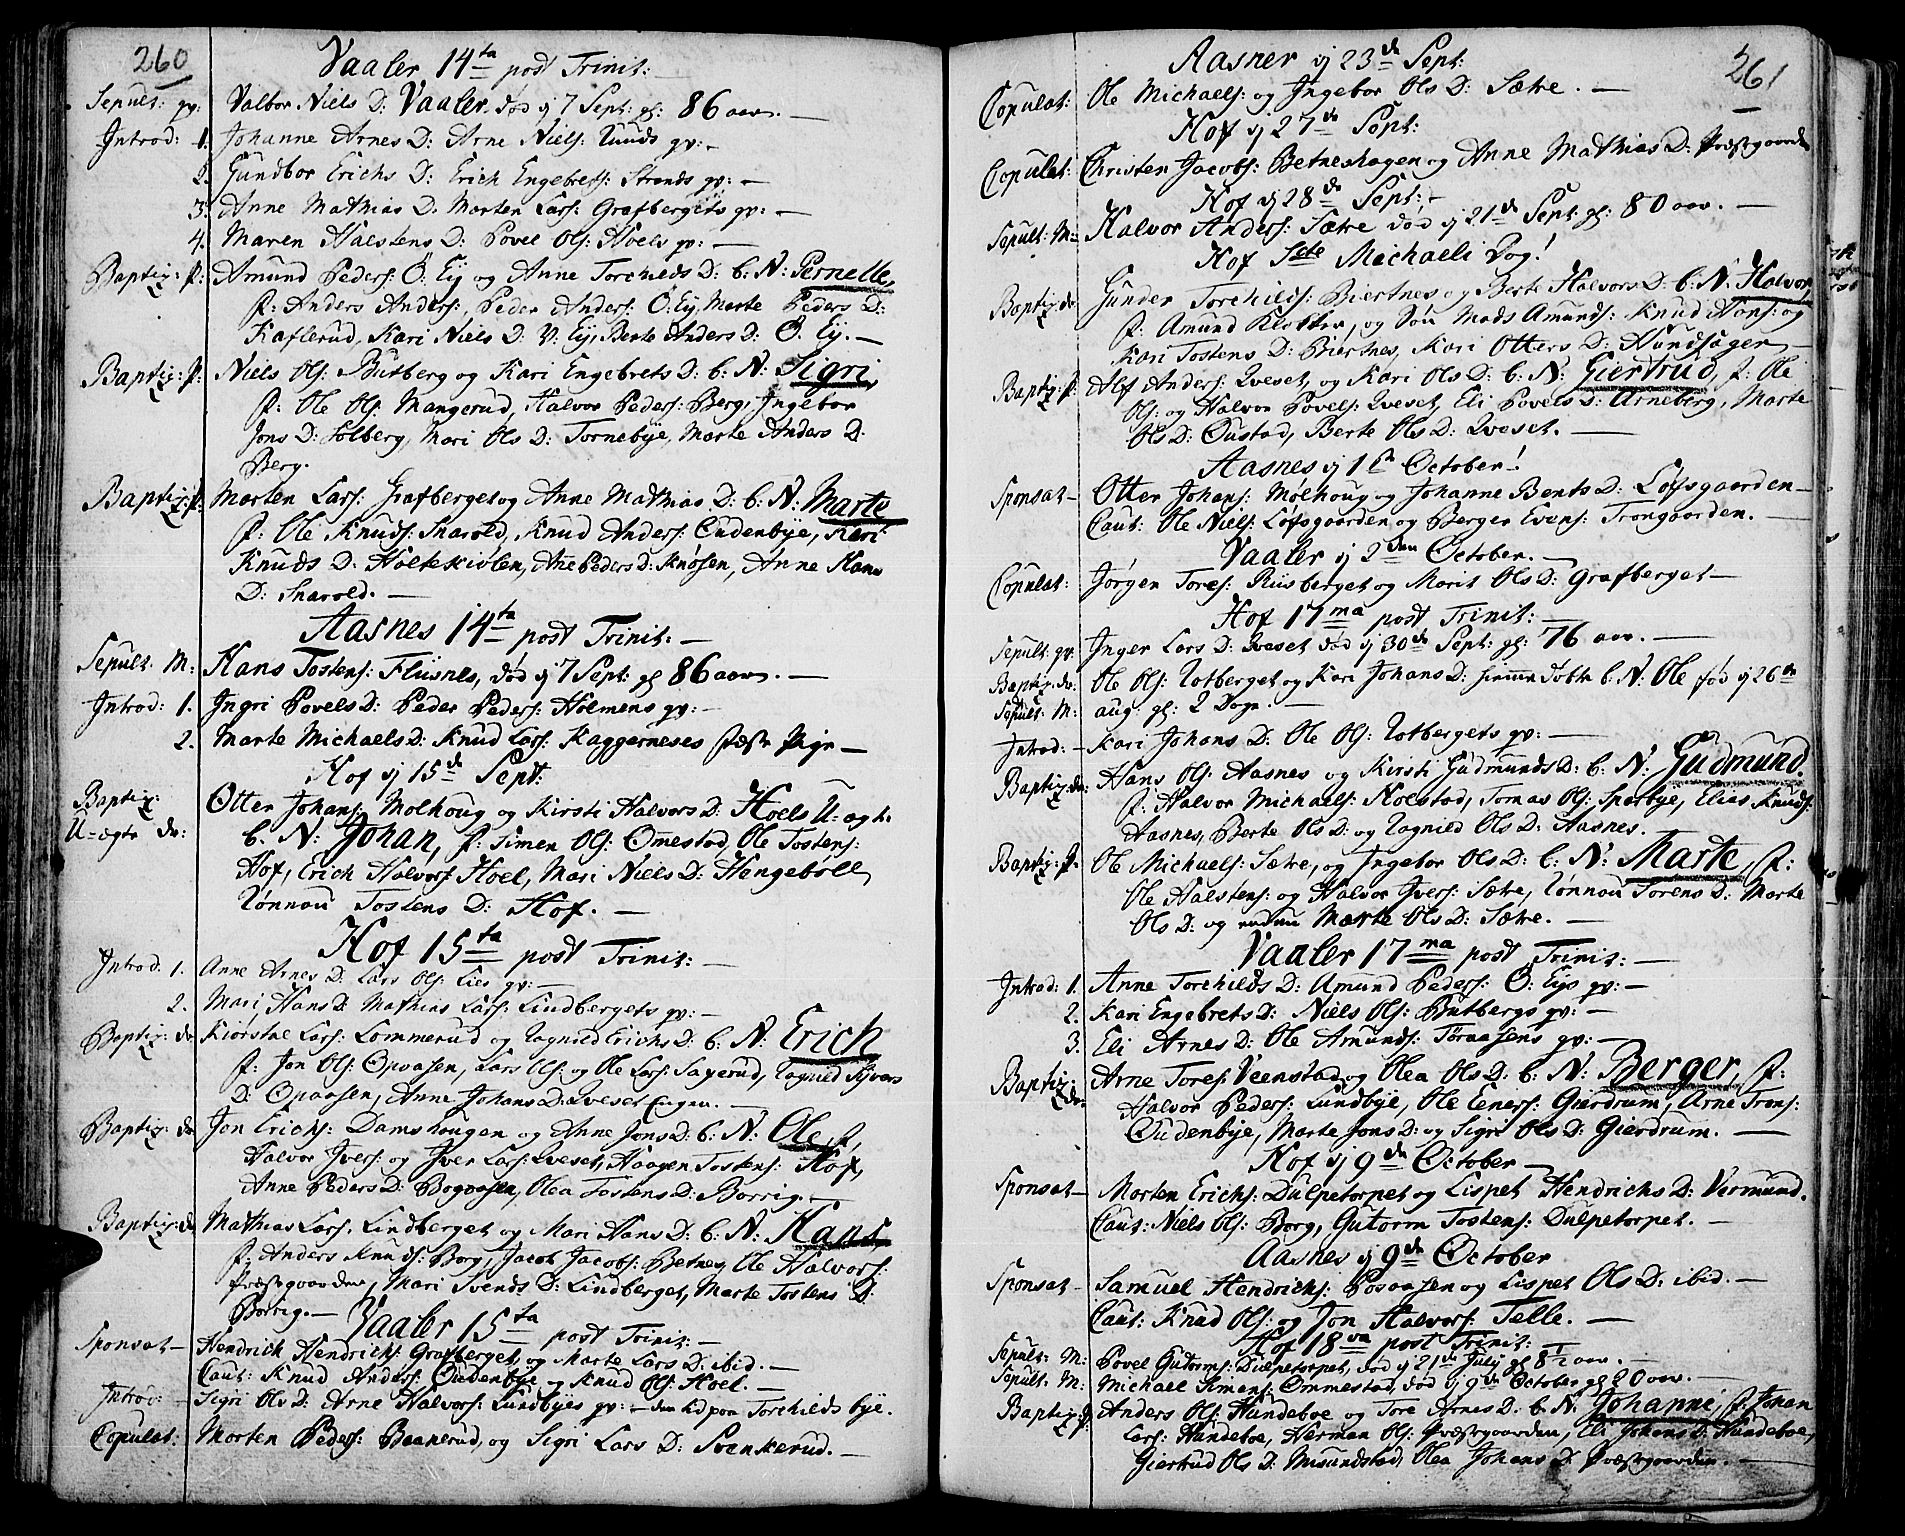 260
Vaaler 14ta post Trinit:
Sepult: qv: Valbor Niels D: Vaaler død ÿ 7 Sept: gl: 86 aar.
Introd: 1. Johanne Arnes D: Arne Niels: Ruuds qv:
2. Gundbor Erichs D: Erich Engebrets: Strands qv:
3. Anne Mathias D: Morten Lars: Grafbergets qv:
4. Maren Halstens D: Povel Ols: Hoels qv:
Baptiz: P: Amund Peders: Ö: Eÿ og Anne Torchilds D: b: N: Pernelle,
f: Anders Anders:, Peder Anders: Ö: Eÿ, Marte Peders D:
Kaflerud, Kari Niels D: V: Eÿ, Berte Anders D: Ö: Eÿ.
Baptiz: P: Niels Ols: Butberg og Kari Engebrets D: b: N: Sigri,
f: Ole Ols: Mangerud, Halvor Peders: Berg, Ingebor
Jons D: Solberg, Mari Ols D: Tornebÿe, Marte Anders D:
Berg.
Baptiz: P: Morten Lars: Grafberget og Anne Mathias D: b: N: Marte
f: Ole Knuds: Skarold, Knud Anders: Oudenbÿe, Kari
Knuds D: Holtekiølen, Ane Peders D: Knøsen, Anne Hans
D: Skarold.
Aasnes 14ta post Trinit:
Sepult: M: Hans Tostens: Fliisnes, død ÿ 7 Sept: gl 86 aar.
Introd: 1. Ingri Povels D: Peder Peders: Holmens qv:
2. Marte Michaels D: Knud Lars: Kaggerneses fæste Pige
Hof ÿ 15de Sept:
Baptiz: U-ægte dr: Otter Johans: Molhoug og Kirsti Halvors D: Hoels U-ægte
b. N: Johan, f: Simen Ols: Ommestad, Ole Tostens:
Hof, Erich Halvors: Hoel, Mari Niels D: Hengeboll,
Rønnou Tostens D: Hof.
Hof 15ta post Trinit:
Introd: 1. Anne Arnes D: Lars Ols: Lies qv:
2. Mari Hans D: Mathias Lars: Lindbergets qv:
Baptiz: dr Kiørstal Lars: Lommerud og Ragnild Erichs D: b: N: Erich
f: Jon Ols: Opaasen, Lars Ols: og Ole Lars: Sagerud, Ragnild Sÿvers
D: Opaasen, Anne Johans D: Qveset Eagen.
Baptiz: dr Jon Erichs: Damshougen og Anne Jons D: b: N: Ole, f:
Halvor Ivers: og Iver Lars: Qveset, Haagen Tostens: Hof,
Anne Peders D: Bogaasen, Olea Tostens D: Borrig.
Baptiz: dr Mathias Lars: Lindberget og Mari Hans D: b: N: Hans
f: Anders Knuds: Borg, Jacob Jacobs: Betnes, Ole Halvors:
Præstgaarden, Mari Svends D: Lindberget, Marte Tostens D:
Borrig.
Vaaler 15ta post Trinit:
Sponsat Hendrich Hendrichs: Grafberget og Marte Lars D: ibid.
Caut: Knud Anders: Oudenbÿe og Knud Ols: Hoel.
Introd: Sigri Ols D: Arne Halvors: Lundbÿes qv: den tid paa Torchildsbÿe.
Copulat: Morten Peders: Baanerud, og Sigri Lars D: Svenkerud.
261
Aasner ÿ 23de Sept:
Copulat: Ole Michaels: og Ingebor Ols D: Sætre.
Hof ÿ 27de Sept:
Copulat: Christen Jacobs: Betneshagen og Anne Mathias D: Præstgaarden
Hof ÿ 28de Sept:
Sepult: M: Halvor Anders: Sætre død ÿ 21de Sept: gl: 80 aar.
Hof Scte Michaeli Dag!
Baptiz: dr Gunder Torchilds: Biertnes og Berte Halvors D: b: N: Halvor
f: Amund Kletten, og Søn Mads Amunds: Knud Hans: og
Kari Tostens D: Biertnes, Kari Otters D: Hundsager
Baptiz: P: Alf Anders: Qveset, og Kari Ols D: b: N: Giertrud, f: Ole
Ols: og Halvor Povels: Qveset, Eli Povels D: Arneberg, Marte
Ols D: Oustad, Berte Ols D: Qveset.
Aasnes ÿ 1te October!
Sponsat Otter Johans: Mølhoug og Johanne Bents D: Løfsgaarden
Caut: Ole Niels: Løfsgaarden og Berger Evens: Trongaarden.
Vaaler ÿ 2den October.
Copulat: Jørgen Tores: Riisberget og Marit Ols D: Grafberget
Hof 17ma post Trinit:
Sepult: qv: Inger Lars D: Qveset død ÿ 30de Sept: gl: 76 aar.
Baptiz: dr: Ole Ols: Rotberget og Kari Johans D: hiemme døbte b: N: Ole fød ÿ 26de
Sepult: M: aug: gl: 2 Dage.
Introd: Kari Johans D: Ole Ols: Rotbergets qv:
Baptiz: dr: Hans Ols: Aasnes og Kirsti Gudmunds D: b: N: Gudmund.
f: Halvor Michaels: Kolstad, Tomas Ols: Sparbÿe, Elias Knuds:
Aasnes, Berte Ols D: og Ragnild Ols D: Aasnes.
Baptiz: P: Ole Michaels: Sætre, og Ingebor Ols D: b: N: Marte, f:
Ole Halstens: og Halvor Ivers: Sætre, Rønnou Torens D: Marte
Ols D: og anden Marte Ols D: Sætre.
Vaaler 17ma post Trinit:
Introd: 1. Anne Torchilds D: Amund Peders: Ö: Eÿs qv:
2. Kari Engebrets D: Niels Ols: Butbergs qv:
3. Eli Arnes D: Ole Amunds: Tøraasens qv:
Baptiz: dr Arne Tores: Veenstad og Olea Ols D: b: N: Berger, f:
Halvor Peders: Lundbÿe, Ole Eeners: Gierdrum, Arne Trons:
Oudenbÿe, Marte Jons D: og Sigri Ols D: Gierdrum.
Hof ÿ 9de October
Sponsat Morten Erichs: Dulpetorpet og Lispet Hendrichs D: Vermund.
Caut: Niels Ols: Borg, Gutorm Tostens: Dulpetorpet.
Aasnes ÿ 9de October
Sponsat Samuel Hendrichs: Posaasen og Lispet Ols D: ibid.
Caut: Knud Ols: og Jon Halvors: Telle.
Hof 18va post Trinit:
Sepult: M: Povel Gutorms: Dulpetorpet, død ÿ 21de Julÿ gl 8 1/2 aar.
Sepult: M: Michael Simens: Ommestad, død ÿ 9de October gl 20 aar.
Baptiz: P: Anders Ols: Hundeboe og Tore Arnes D: b: N: Johanne, f: Johan
Lars: Hundeboe, Herman Ols: Præstgaarden, Eli Johans D: Hundeboe,
Giertrud Ols D: Misundstad, Olea Johans D: Præstgaarden.